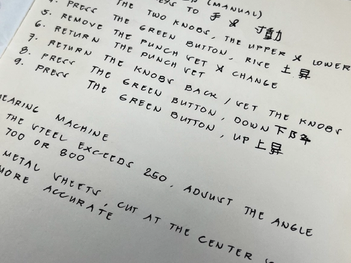 (MANUAL)
TO 手动
5. PRESS THE TWO KNOBS, THE UPPER & LOWER
6. REMOVE THE GREEN BUTTON, RISE 上昇
7. RETURN THE PUNCH VET & CHANGE
8. RETURN THE PUNCH VET
9. PRESS THE KNOBS BACK / VET THE KNOBS
PRESS THE GREEN BUTTON, DOWN 下降
THE GREEN BUTTON, UP 上昇
EARING MACHINE
THE STEEL EXCEEDS 250, ADJUST THE ANGLE
700 OR 800
METAL SHEETS, CUT AT THE CENTER
MORE ACCURATE